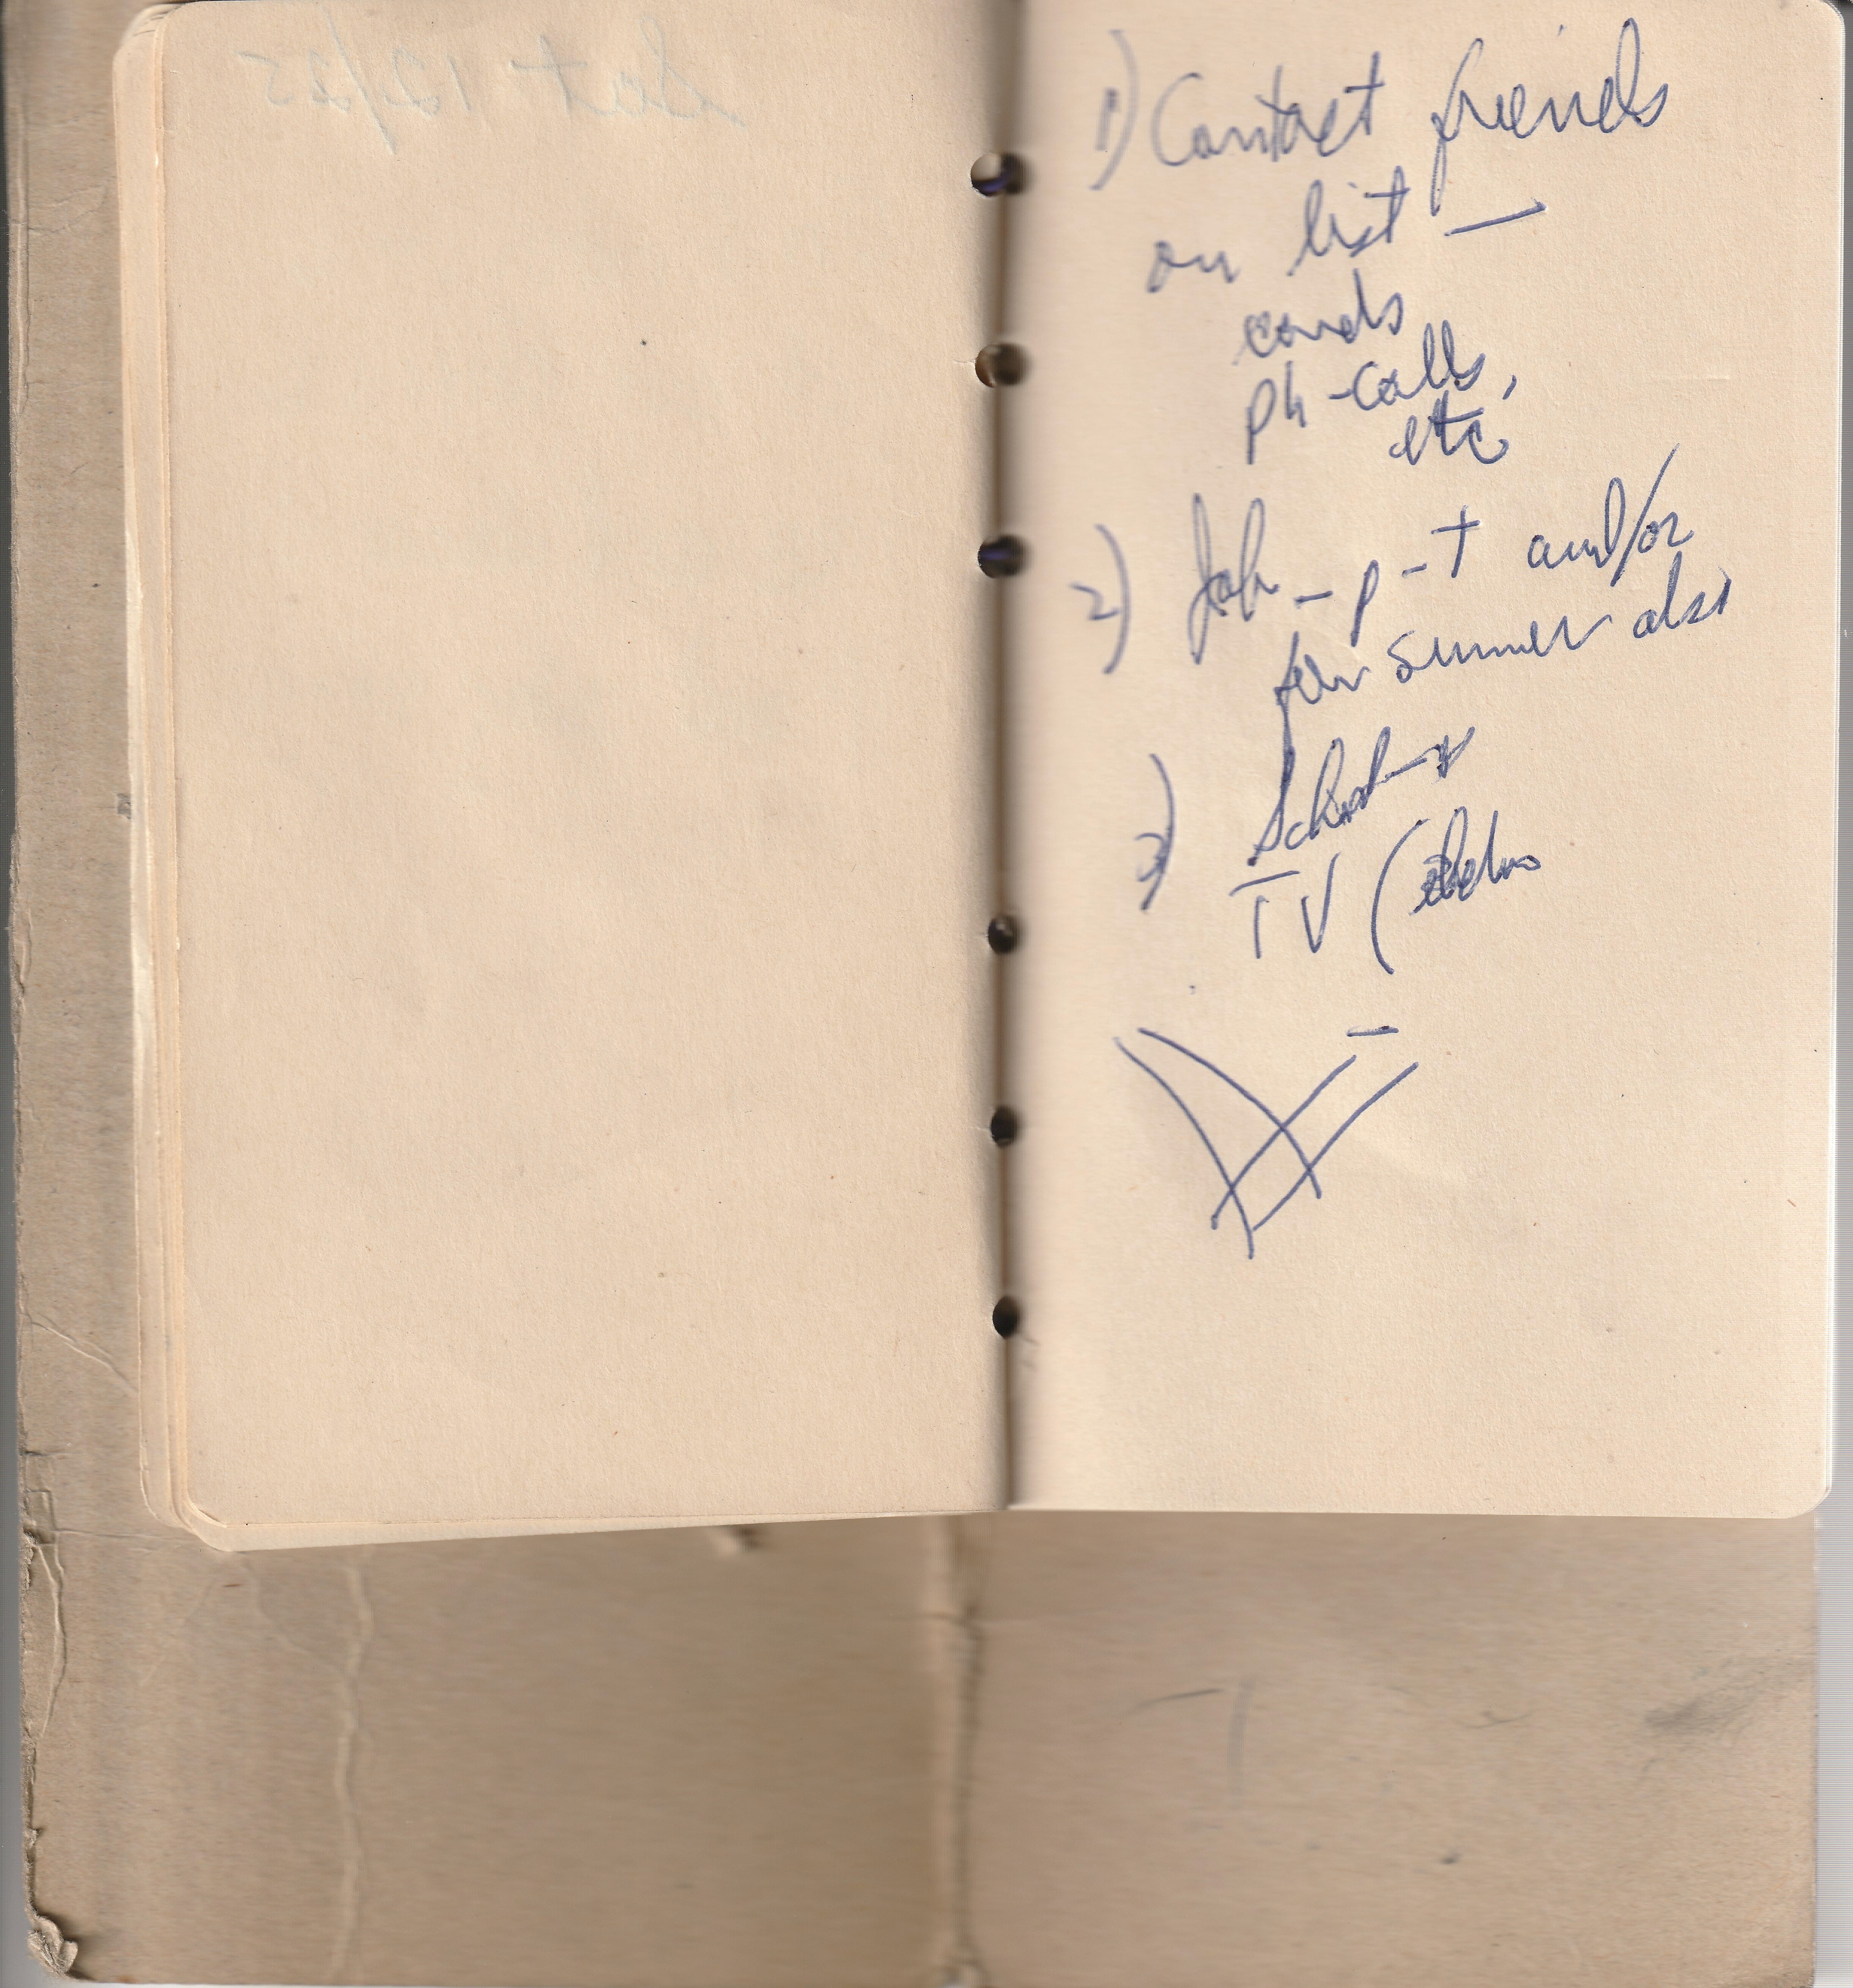 Sat. 12/25
1) Contact friends
on list —
cards
ph-calls,
etc
2) Job – p-T and/or
for summer also
3)
TV (